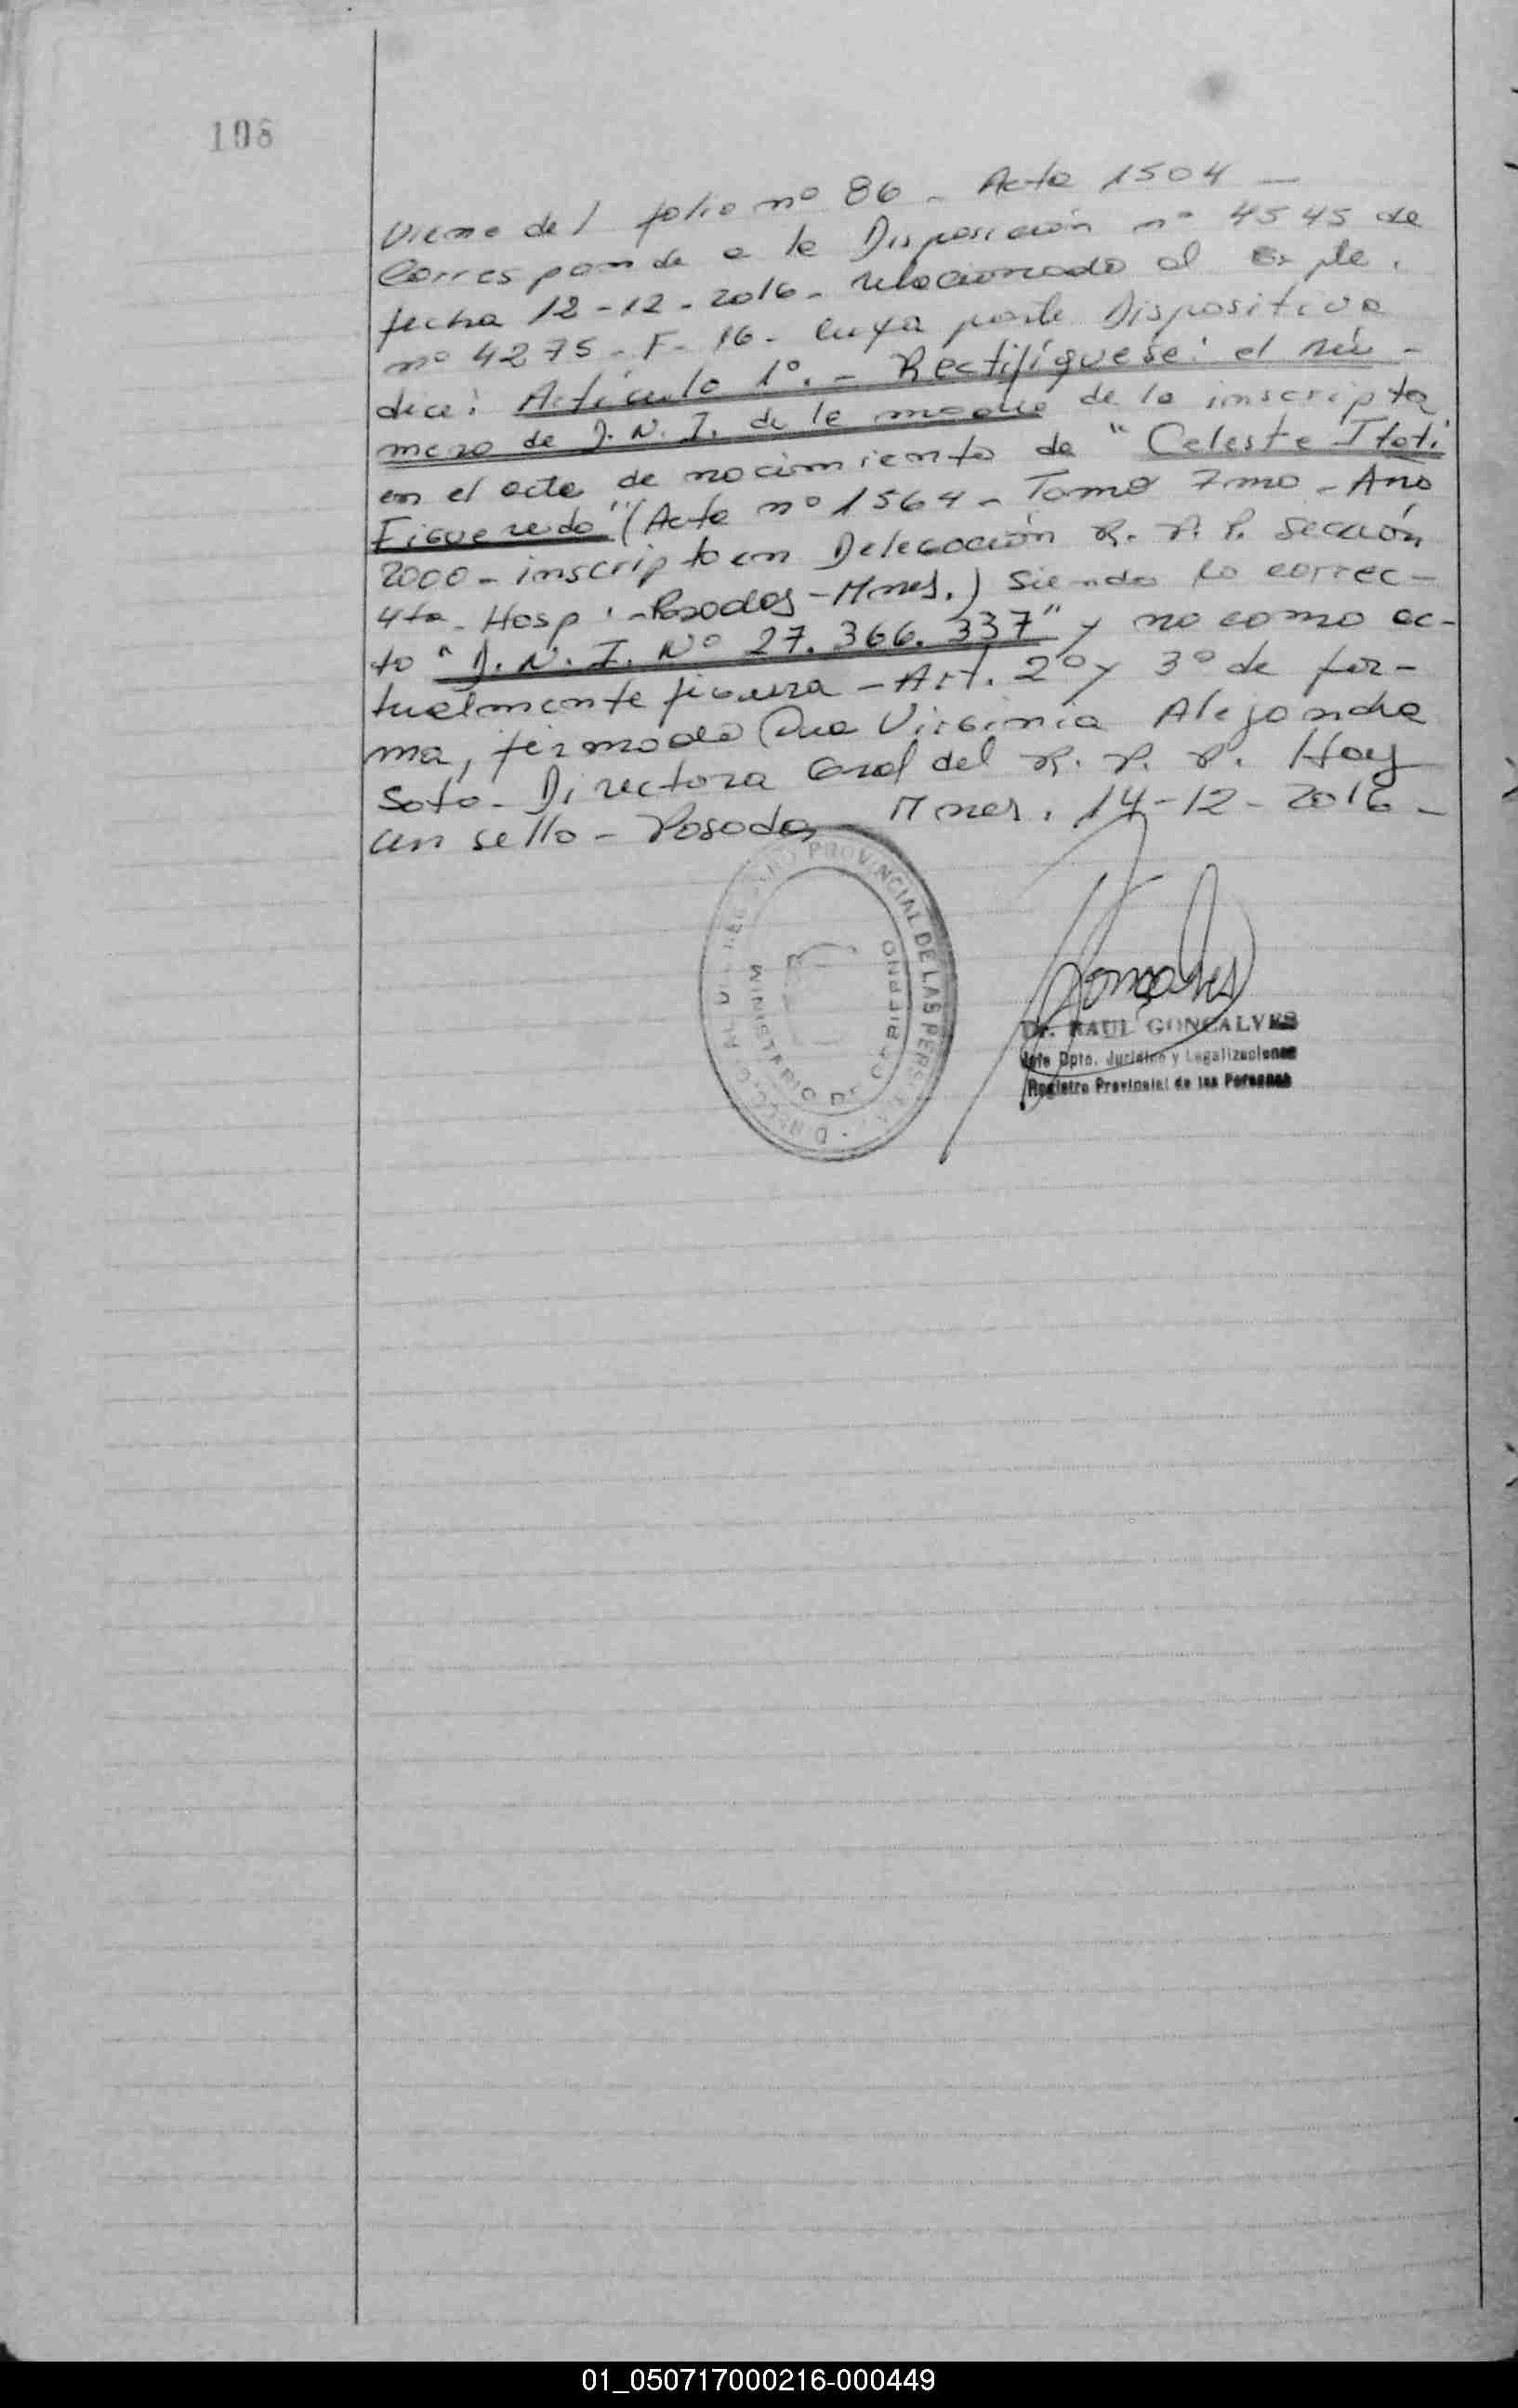 108
Viene del folio nº 86 - Acta 1504 -
Corresponde a la Disposición nº 4545 de
fecha 12-12-2016 - relacionado al Expte.
nº 4275 - F - 16 - cuya parte Dispositiva
dice: Artículo 1º. - Rectifíquese: el nú-
mero de D.N.I. de la madre de la inscripta
en el acta de nacimiento de "Celeste Itatí
Figueredo" (Acta nº 1564 - Tomo 7mo - Año
2000 - inscripto en Delegación R. P. P. Sección
4ta - Hosp. - Posadas - Mnes.) Siendo lo correc-
to "D.N.I. Nº 27.366.337" y no como ac-
tualmente figura - Art. 2º y 3º de for-
ma, firmado Dra Virginia Alejandra
Soto - Directora Gral del R. P. P. Hay
un sello - Posadas Mnes. 14-12-2016 -
PROVINCIAL DE LAS
MINISTERIO DE GOBIERNO
Dr. RAUL GONCALVES
Jefe Dpto. Jurídico y Legalizaciones
Registro Provincial de las Personas
01_050717000216-000449